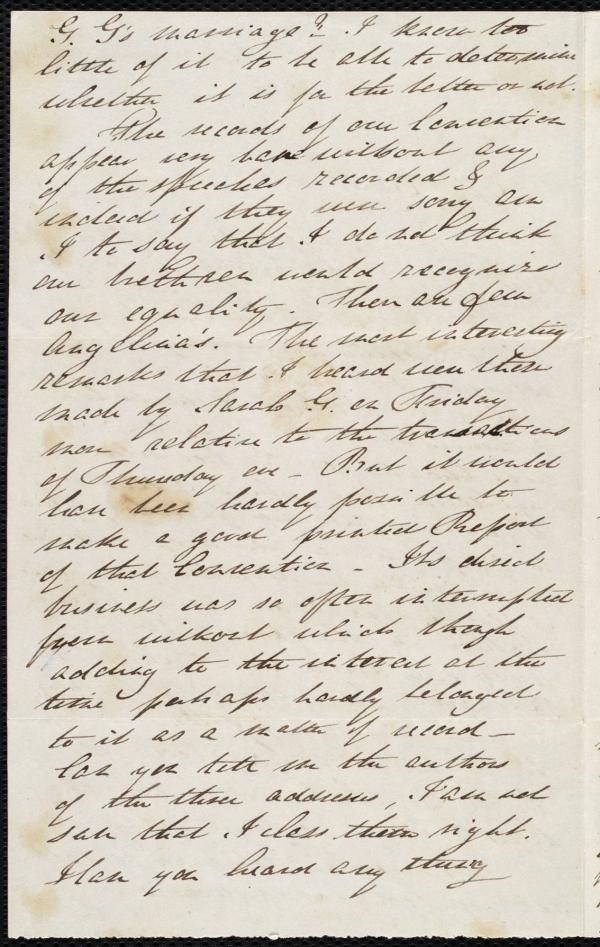 G. G's marriage? I know too
little of it to be able to determine
whether it is for the better or not.
The records of our Convention
appear very bare without any
of the speeches recorded &
indeed if they were sorry am
I to say that I do not think
our brethren would recognize
our equality. There are few
Angelina's. The most interesting
remarks that I heard were those
made by Sarah G. on Friday
morn relative to the transactions
of Thursday eve - But it would
have been hardly possible to
make a good printed Report
of that Convention - Its direct
business was so often interrupted
from without which though
adding to the interest at the
time perhaps hardly belonged
to it as a matter of record -
Can you tell me the authors
of the three addresses, I am not
sure that I class them right.
Have you heard any thing